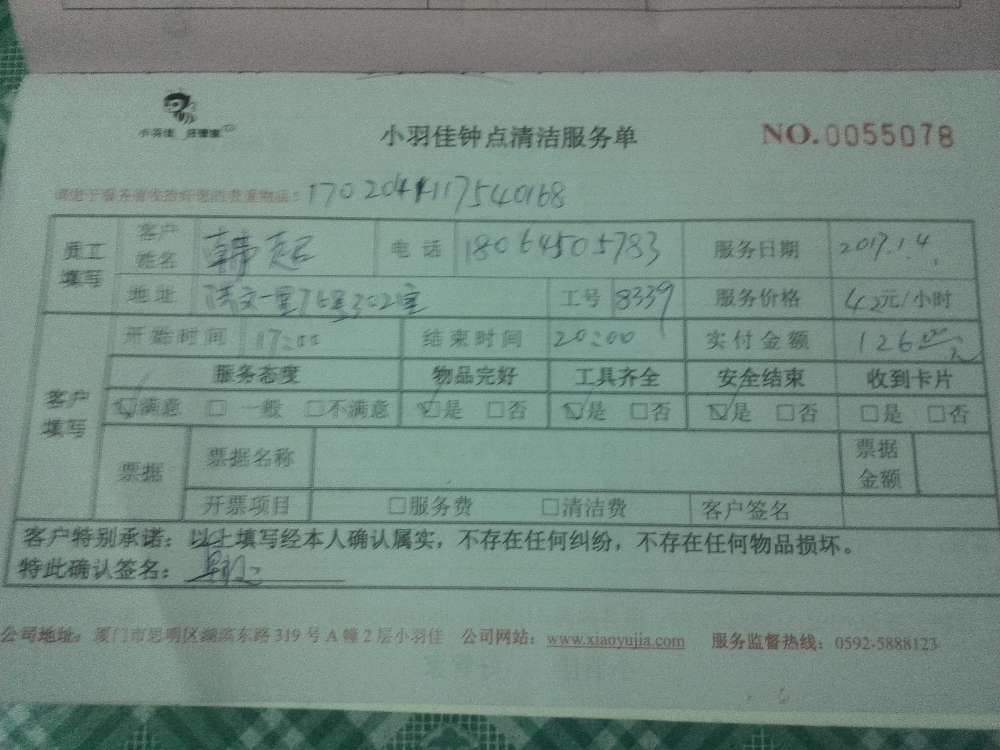 小羽佳 好管家
小羽佳钟点清洁服务单 NO.0055078
请您于服务前收拾好您的贵重物品: 17020441117540168
员工填写 客户姓名 韩起 电话 18064505783 服务日期 2017.1.4
地址 工号 8339 服务价格 42元/小时
客户填写 开始时间 17:00 结束时间 20:00 实付金额 126元
服务态度 物品完好 工具齐全 安全结束 收到卡片
☑满意 □一般 □不满意 ☑是 □否 ☑是 □否 ☑是 □否 □是 □否
票据 票据名称 票据金额
开票项目 □服务费 □清洁费 客户签名
客户特别承诺：以上填写经本人确认属实，不存在任何纠纷，不存在任何物品损坏。
特此确认签名：
公司地址：厦门市思明区湖滨东路319号A幢2层小羽佳 公司网站：www.xiaoyujia.com 服务监督热线：0592-5888123